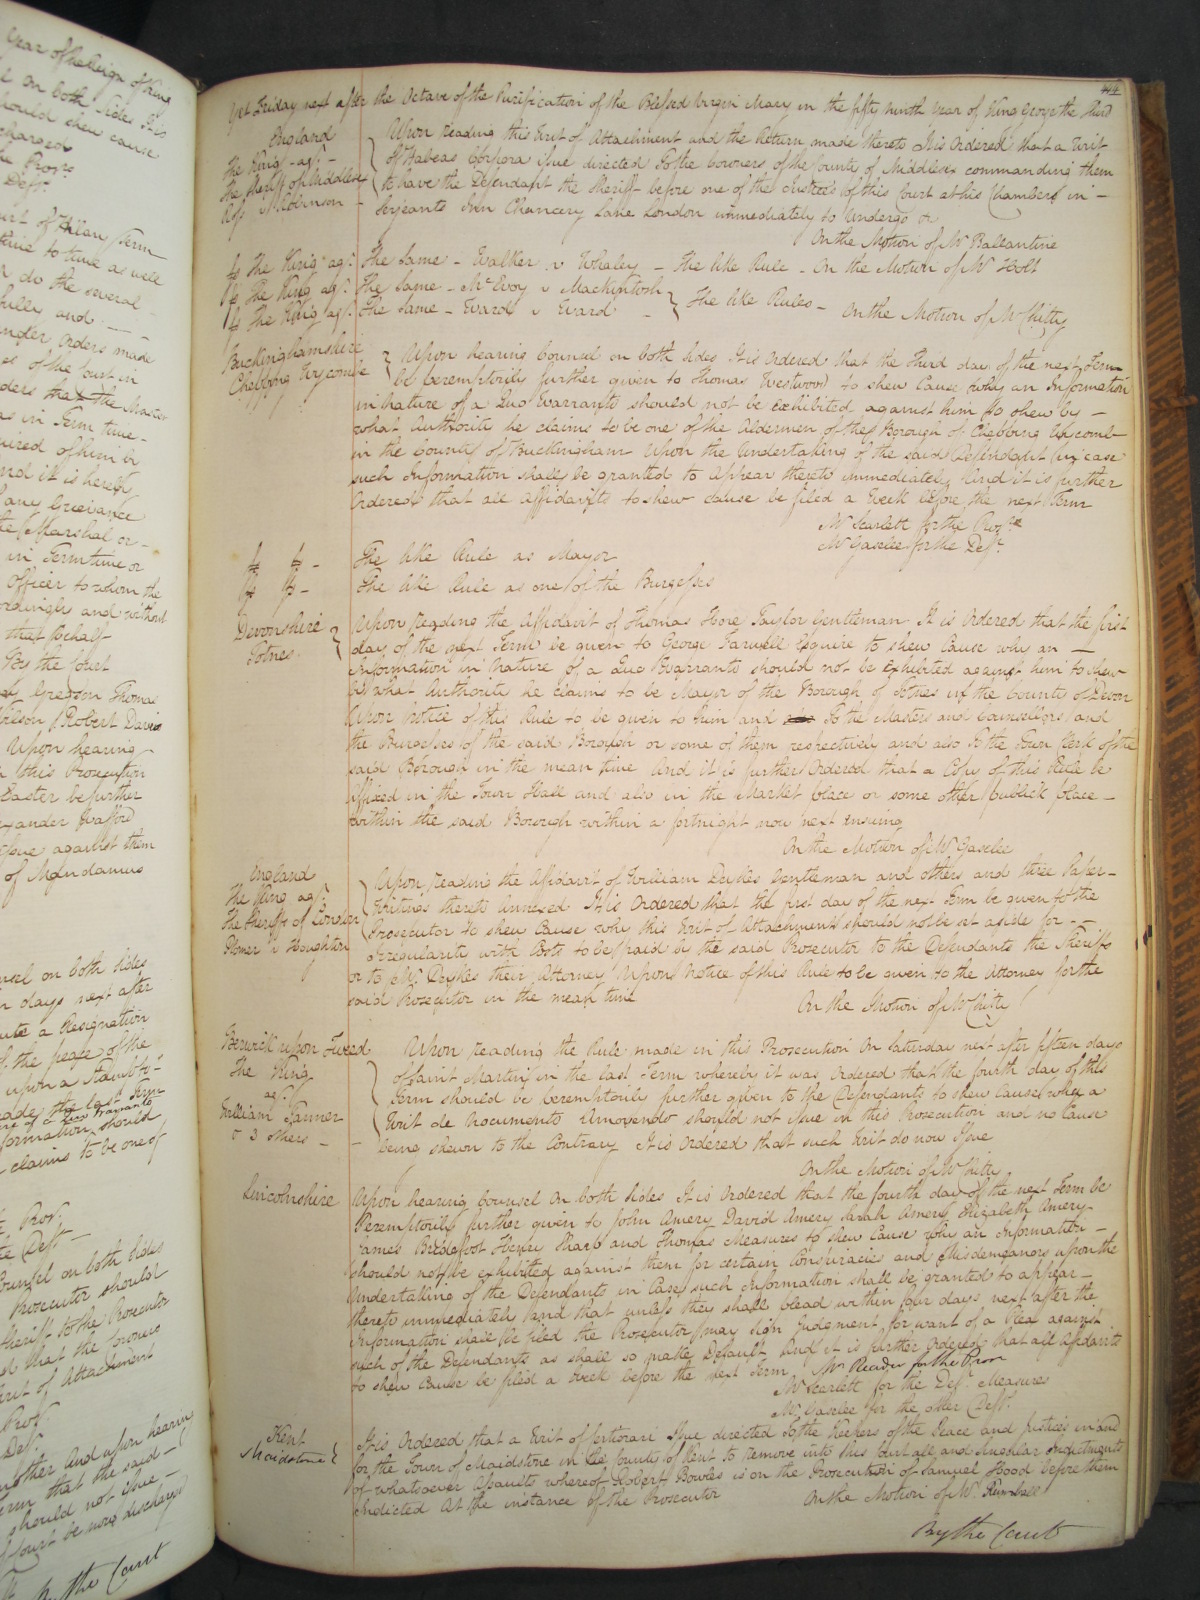 Year of the Reign of King
on both Sides It is
should shew cause
charged
the Pros.r
Def.t
Court of Hilary Term
time to time as well
do the several
fully and —
under Orders made
of the Court in
Orders that the Master
as in Term time —
required of him by
and it is hereby
any Grievance
the Marshal or —
in Term time or
Officer to whom the
accordingly and without
that behalf
By the Court
Gregson Thomas
Robert Davis
Upon hearing
this Prosecution
Easter be further
issue against them
of Mandamus
Counsel on both sides
days next after
a Resignation
the peace of the
upon a
made the last Term
Information should
claims to be one of
Pros.r
the Def.t —
Counsel on both Sides
Prosecutor should
Sheriff to the Prosecutor
that the Coroners
Writ of Attachment
Pros.r
Def.t
another And upon hearing
that the said —
should not Issue —
Court be now discharged
By the Court
444
Yet Friday next after the Octave of the Purification of the Blessed Virgin Mary in the fifty ninth Year of King George the third
England
The King ag.t —
The Sheriff of Middlesex
Robinson —
Upon reading this Writ of Attachment and the Return made thereto It is Ordered that a Writ
of Habeas Corpora issue directed To the Coroners of the County of Middlesex commanding them
to have the Defendant the Sheriff before one of the Justices of this Court at his Chambers in —
Serjeants Inn Chancery Lane London immediately to undergo &c
On the Motion of Mr Ballantine
The King ag.t The Same — Walker v Whaley — The like Rule — On the Motion of Mr Holt
The King ag.t The Same — McEvoy v Mackintosh
The King ag.t The Same — Ward v Ward —
The like Rules — On the Motion of Mr Chitty
Buckinghamshire
Chepping Wycombe
Upon hearing Counsel on both sides It is Ordered that the third day of the next Term
be peremptorily further given to Thomas Westwood to shew Cause why an Information
in nature of a Quo Warranto should not be Exhibited against him to shew by —
what Authority he claims to be one of the Aldermen of the Borough of Chepping Wycomb
in the County of Buckingham Upon the Undertaking of the said Defendant in case
such Information shall be granted to Appear thereto immediately And it is further
Ordered that all affidavits to shew Cause be filed a Week before the next Term
Mr Scarlett for the Pros.r
Mr Gaselee for the Def.t
The like Rule as Mayor
The like Rule as one of the Burgesses
Devonshire
Totnes
Upon reading the Affidavit of Thomas Hore Taylor gentleman It is Ordered that the first
day of the next Term be given to George Farwell Esquire to shew Cause why an —
Information in Nature of a Quo Warranto should not be Exhibited against him to shew
by what Authority he claims to be Mayor of the Borough of Totnes in the County of Devon
Upon Notice of this Rule to be given to him and To the Masters and Counsellors and
the Burgesses of the said Borough or some of them respectively and also To the Town Clerk of the
said Borough in the mean time And it is further Ordered that a Copy of this Rule be
affixed in the Town Hall and also in the Market place or some other publick place —
within the said Borough within a fortnight now next ensuing
On the Motion of Mr Gaselee
England
The King ag.t
The Sheriffs of London
Plomer v Houghton
Upon reading the Affidavit of William Dukes Gentleman and others and three Paper —
Writings thereto annexed It is Ordered that the first day of the next Term be given to the
Prosecutor to shew Cause why this Writ of Attachment should not be set aside for —
Irregularity with Costs to be paid by the said Prosecutor to the Defendants the Sheriffs
or to Mr Dukes their Attorney Upon Notice of this Rule to be given to the Attorney for the
said Prosecutor in the mean time
On the Motion of Mr Chitty
Berwick upon Tweed
The King
ag.t
William Tanner
& 3 others —
Upon reading the Rule made in this Prosecution On Saturday next after fifteen days
of Saint Martin in the last Term whereby it was Ordered that the fourth day of this
Term should be peremptorily further given to the Defendants to shew Cause why a
Writ de Nocumento Amovendo should not issue in this Prosecution and no Cause
being shewn to the Contrary It is Ordered that such Writ do now Issue
On the Motion of Mr Chitty
Lincolnshire
Upon hearing Counsel On both sides It is Ordered that the fourth day of the next Term be
Peremptorily further given to John Amery David Amery Sarah Amery Elizabeth Amery
James Bridgefoot Henry Sharp and Thomas Measures to shew Cause why an Information —
should not be exhibited against them for certain Conspiracies and Misdemeanors upon the
Undertaking of the Defendants in Case such Information shall be granted to appear —
thereto immediately and that unless they shall plead within four days next after the
Information shall be filed the Prosecutor may sign Judgment for want of a Plea against
such of the Defendants as shall so make Default And it is further Ordered that all Affidavits
to shew Cause be filed a week before the next Term
Mr Reader for the Pros.r
Mr Scarlett for the Def.t Measures
Mr Gaselee for the other Def.ts
Kent
Maidstone
It is Ordered that a Writ of Certiorari Issue directed To the Keepers of the Peace and Justices in and
for the Town of Maidstone in the County of Kent to Remove into this Court all and Singular Indictments
of whatsoever Assaults whereof Robert Bowles is on the Prosecution of Samuel Hood before them
Indicted At the instance of the Prosecutor
On the Motion of Mr
By the Court